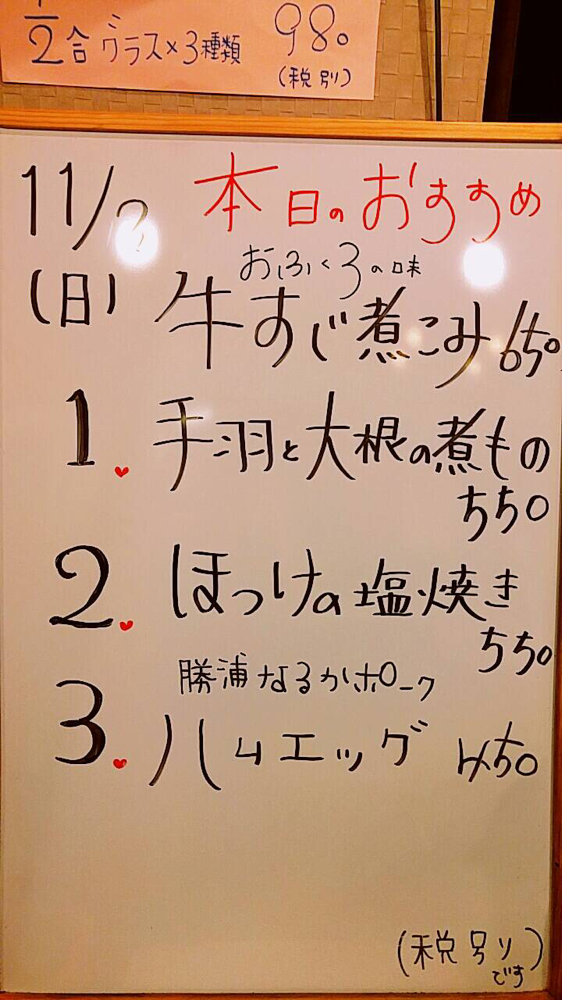 1/2合グラス×3種類 980
(税別)
11/
本日のおすすめ
(日)
おふくろの味
牛すじ煮こみ 650
1. 手羽と大根の煮もの
550
2. ほっけの塩焼き
550
勝浦なるかポーク
3. ハムエッグ 450
(税別りです)